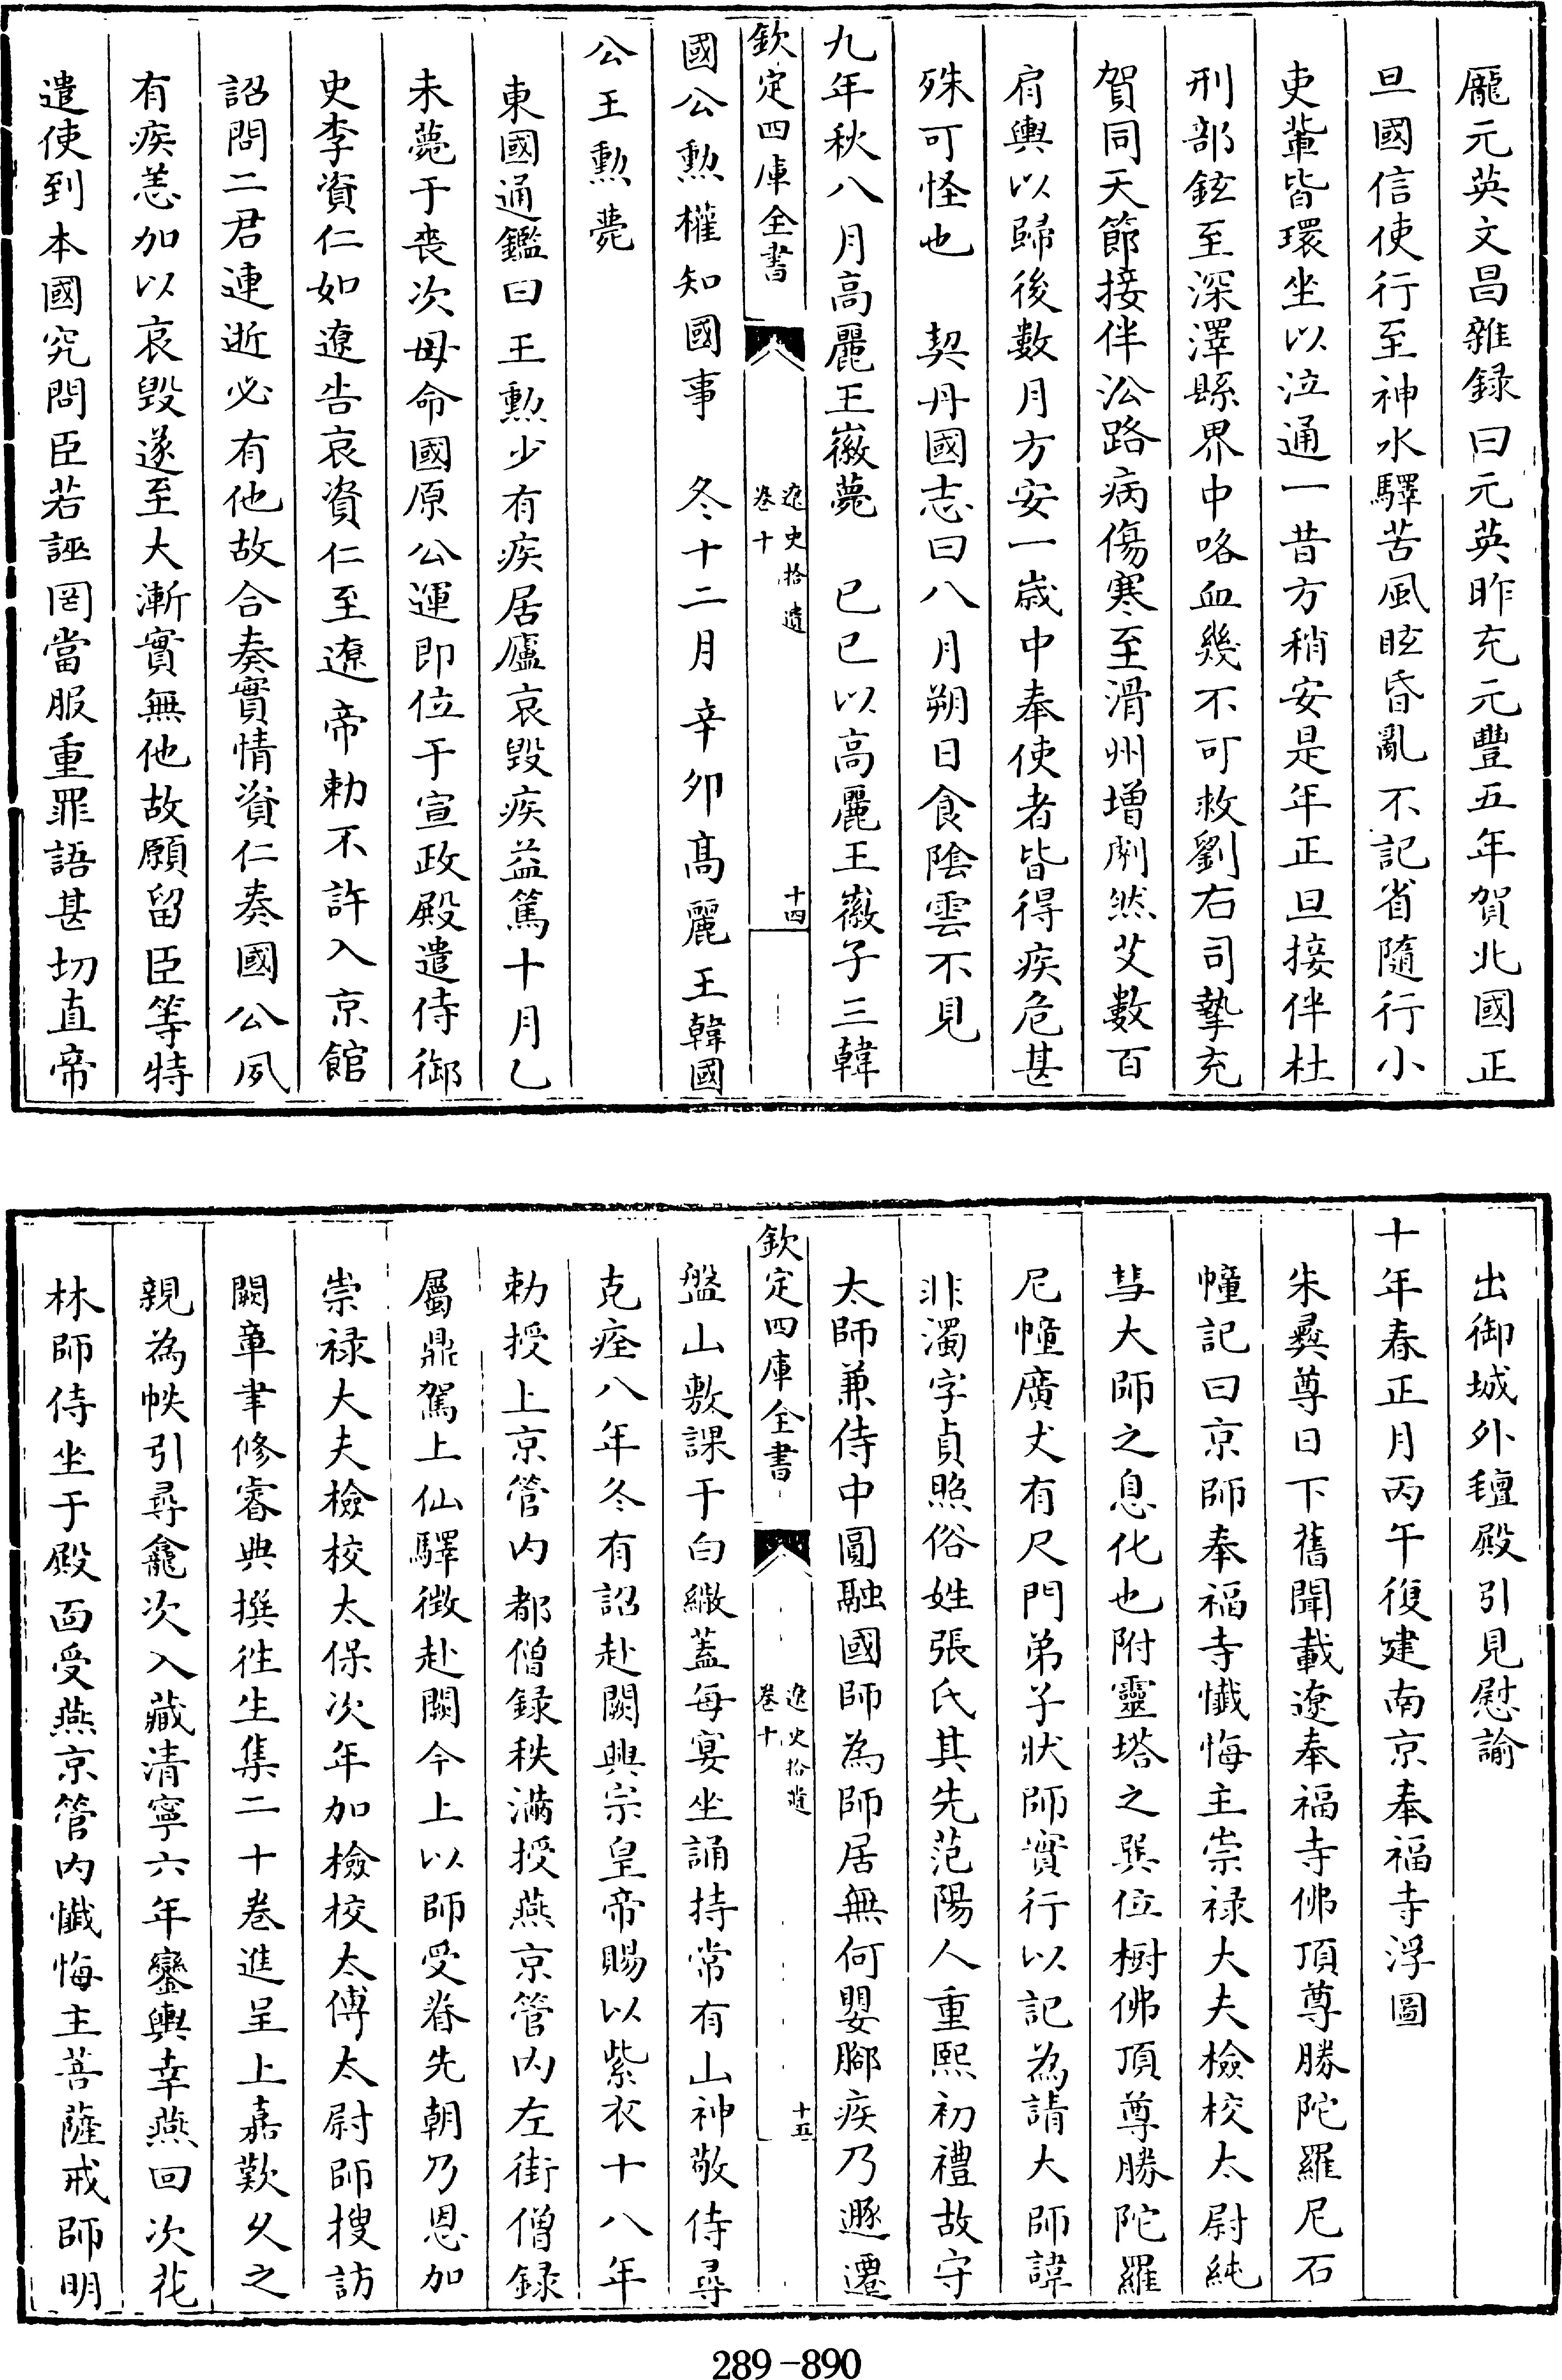 龎元英文昌雜録曰元英昨充元豐五年賀北國正
旦國信使行至神水驛苦風眩昏亂不記省隨行小
吏輩皆環坐以泣通一昔方稍安是年正旦接伴杜
刑部鉉至深澤縣界中咯血幾不可救劉右司摯充
賀同天節接伴㳂路病傷寒至滑州增劇然艾數百
肩輿以歸後數月方安一歲中奉使者皆得疾危甚
殊可怪也　契丹國志曰八月朔日食陰雲不見
九年秋八月高麗王徽薨　己巳以高麗王徽子三韓
欽定四庫全書　遼史拾遺卷十　十四
國公勲權知國事　冬十二月辛卯高麗王韓國
公王勲薨
東國通鑑曰王勲少有疾居廬哀毁疾益篤十月乙
未薨于喪次毋命國原公運即位于宣政殿遣侍御
史李資仁如遼告哀資仁至遼帝勅不許入京館
詔問二君連逝必有他故合奏實情資仁奏國公夙
有疾恙加以哀毁遂至大漸實無他故願留臣等特
遣使到本國究問臣若誣罔當服重罪語甚切直帝
出御城外氊殿引見慰諭
十年春正月丙午復建南京奉福寺浮圖
朱彛尊日下舊聞載遼奉福寺佛頂尊勝陀羅尼石
幢記曰京師奉福寺懺悔主崇禄大夫檢校太尉純
彗大師之息化也附靈塔之巽位樹佛頂尊勝陀羅
尼幢廣丈有尺門弟子狀師實行以記為請大師諱
非濁字貞照俗姓張氏其先范陽人重熙初禮故守
太師兼侍中圓融國師為師居無何嬰腳疾乃遯遷
欽定四庫全書　遼史拾遺卷十　十五
盤山敷課于白繖蓋每宴坐誦持常有山神敬侍尋
克痊八年冬有詔赴闕興宗皇帝賜以紫衣十八年
勅授上京管内都僧録秩滿授燕京管内左街僧録
屬鼎駕上仙驛徴赴闕今上以師受眷先朝乃恩加
崇禄大夫檢校太保次年加檢校太傅太尉師搜訪
闕章聿修睿典撰徃生集二十卷進呈上嘉歎乆之
親為帙引尋龕次入藏清寧六年鑾輿幸燕回次花
林師侍坐于殿面受燕京管内懺悔主菩薩戒師明
289-890